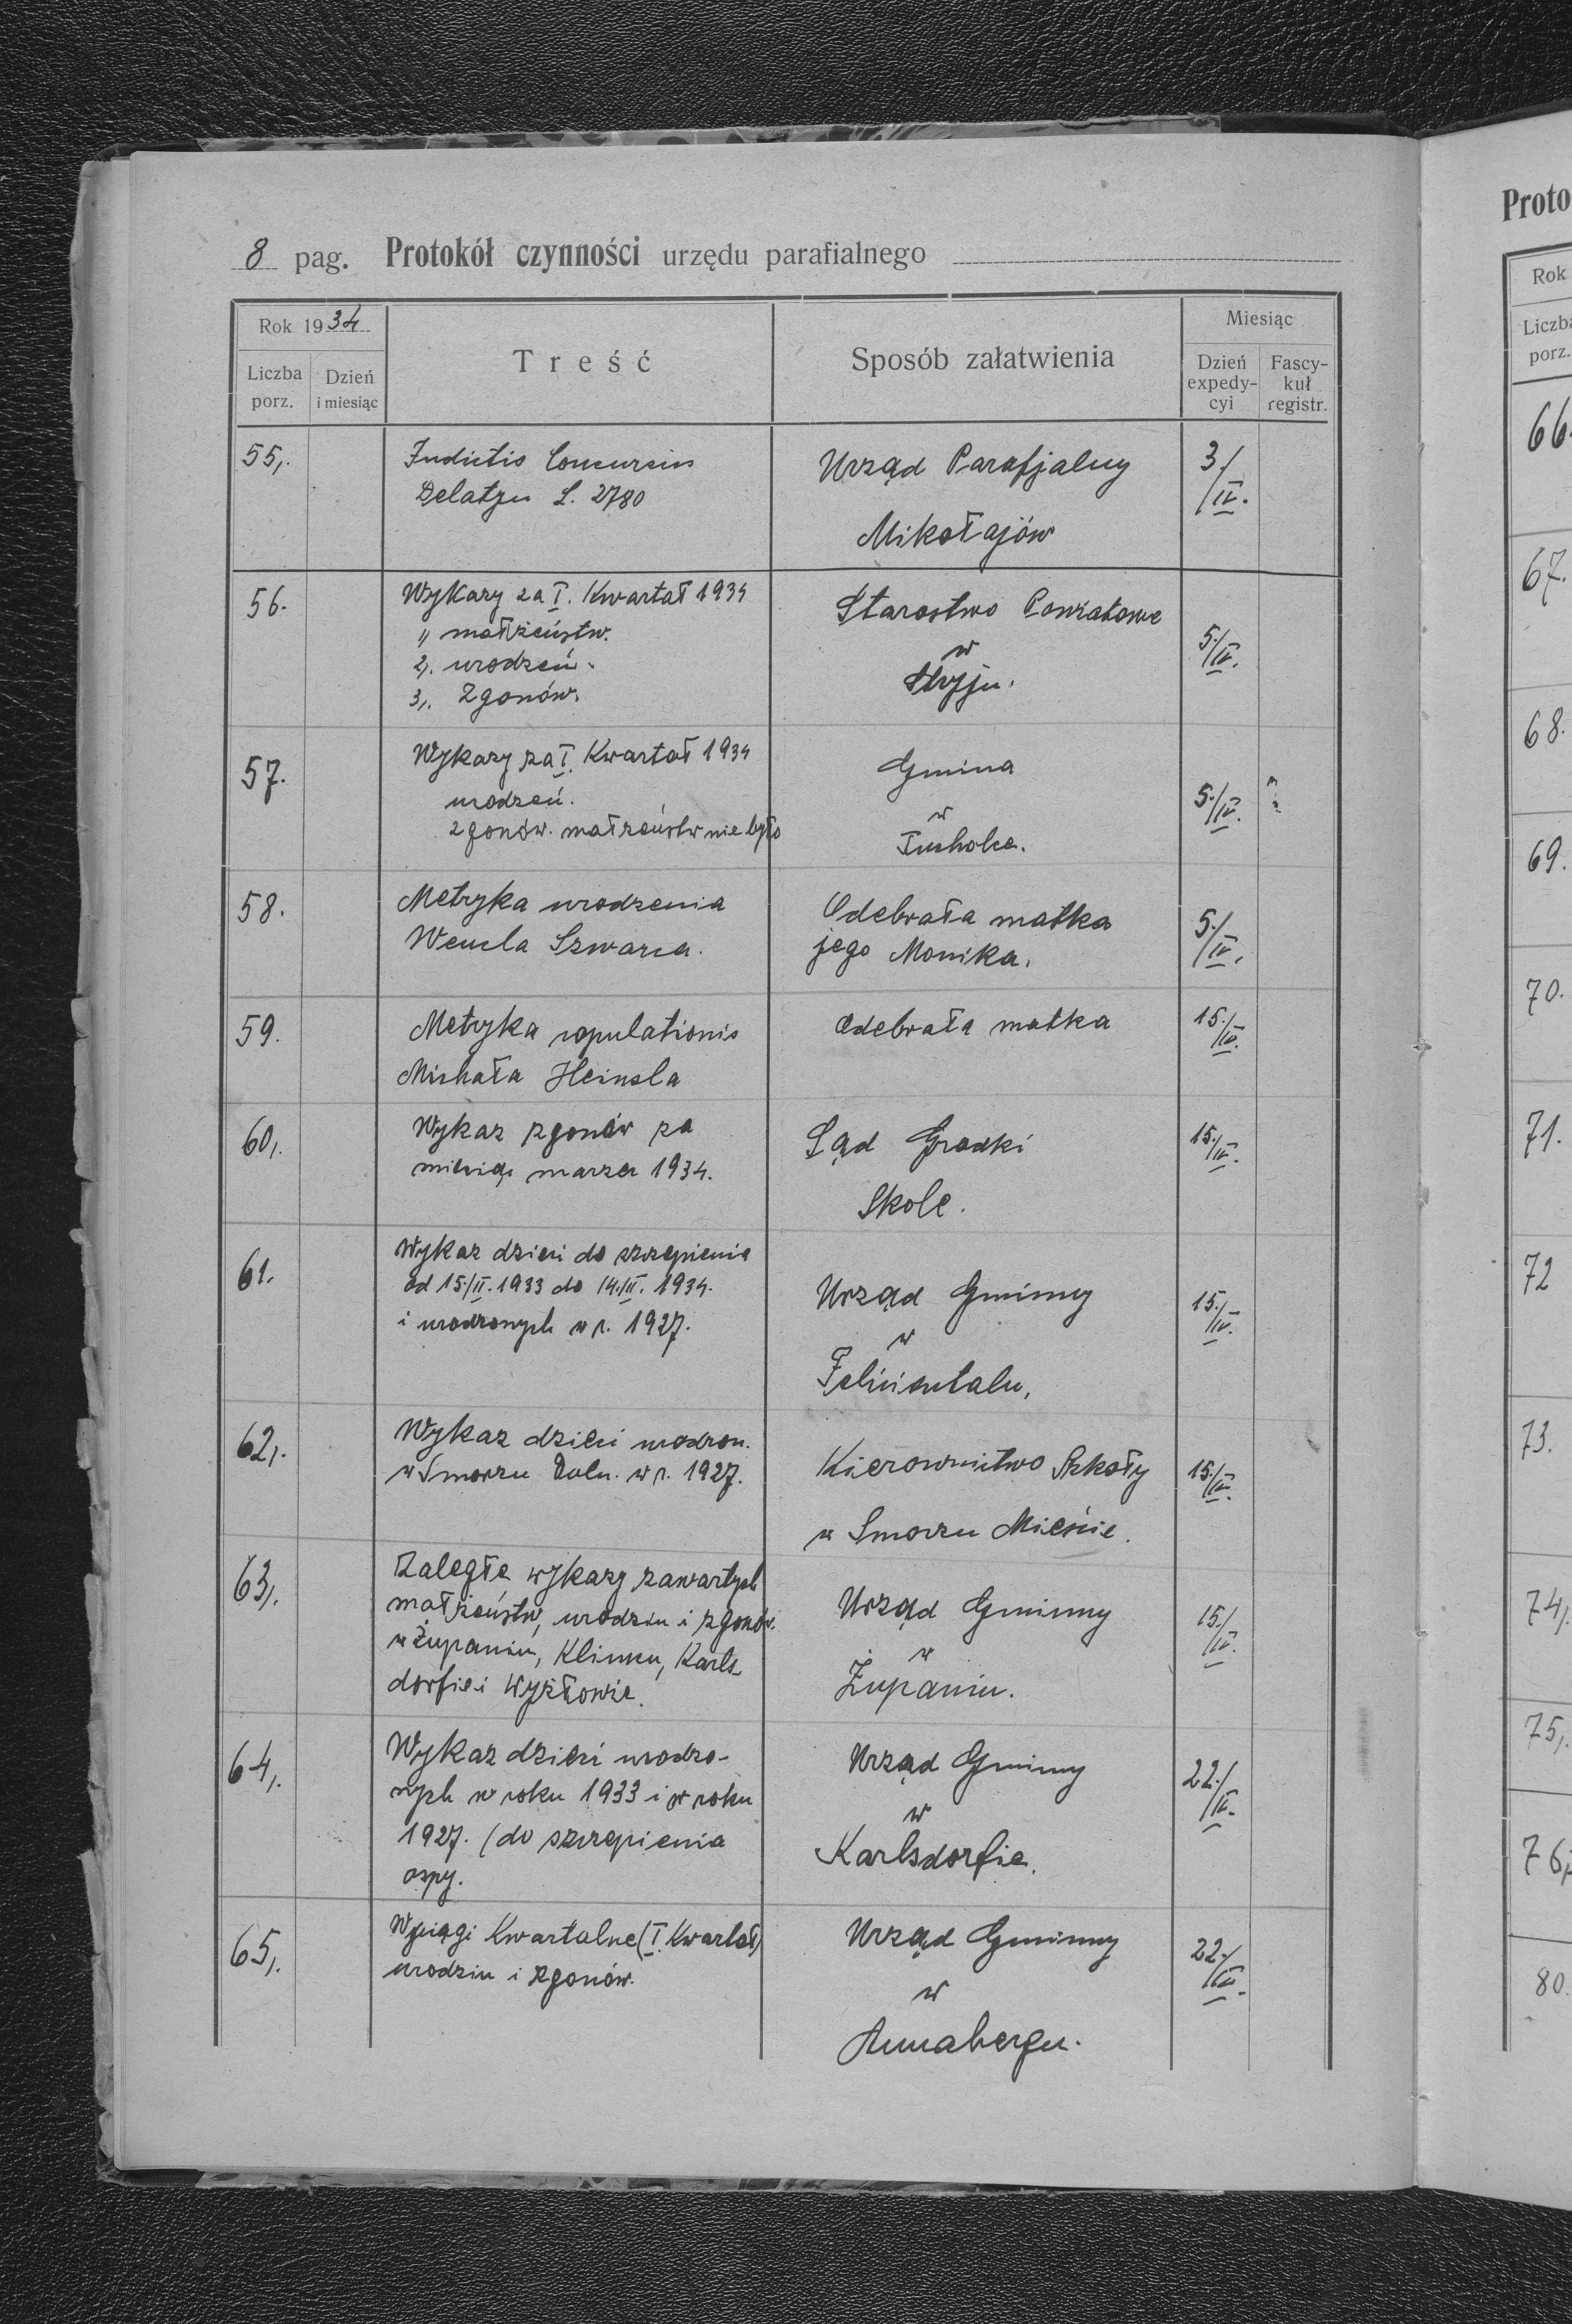 8 pag. Protokół czynności urzędu parafialnego
Rok 1934
Liczba porz.
Dzień i miesiąc
Treść
Sposób załatwienia
Miesiąc
Dzień expedy-cyi
Fascy-kuł registr.
55,. Indictis Concursus Urząd Parafjalny 3./IV.
Delatyn L. 2780
Mikołajów
56. Wykazy za I. Kwartał 1934 Starostwo Powiatowe 5./IV.
,, małżeństw. w
2,. urodzeń. Stryju.
3,. Zgonów.
57. Wykazy za I. Kwartał 1934 Gmina 5./IV.
urodzeń. w
zgonów. małżeństw nie było Tucholce.
58. Metryka urodzenia Odebrała matka 5./IV.
Wencla Szwarca. jego Monika.
59. Metryka copulationis Odebrała matka 15./IV.
Michała Heinsla
60,. Wykaz zgonów za Sąd Grodzki 15./IV.
miesiąc marzec 1934. Skole.
61. Wykaz dzieci do szczepienia
od 15/II.1933 do 14./II. 1934. Urząd Gminny 15./IV.
i urodzonych w r. 1927. w
Felicientalu,
62,. Wykaz dzieci urodzon. Kierownictwo Szkoły 15./IV.
w Smorzu Doln. w r. 1927.
w Smorzu Mieście.
63,. Zaległe wykazy zawartych
małżeństw, urodzin i zgonów. Urząd Gminny 15./IV.
w Żupaniu, Klimcu, Karls w
dorfie i Wyżłowie. Żupaniu.
64,. Wykaz dzieci urodzo- Urząd Gminny 22./IV.
nych w roku 1933 i w roku w
1927. (do szczepienia Karlsdorfie.
ospy.
65,. Wyciągi Kwartalne (I. Kwartał) Urząd Gminny 22./IV.
urodzin i zgonów. w
Annabergu.
Proto
Rok
Liczba
porz.
66.
67.
68.
69.
70.
71.
72
73.
74,.
75,.
76,
80.